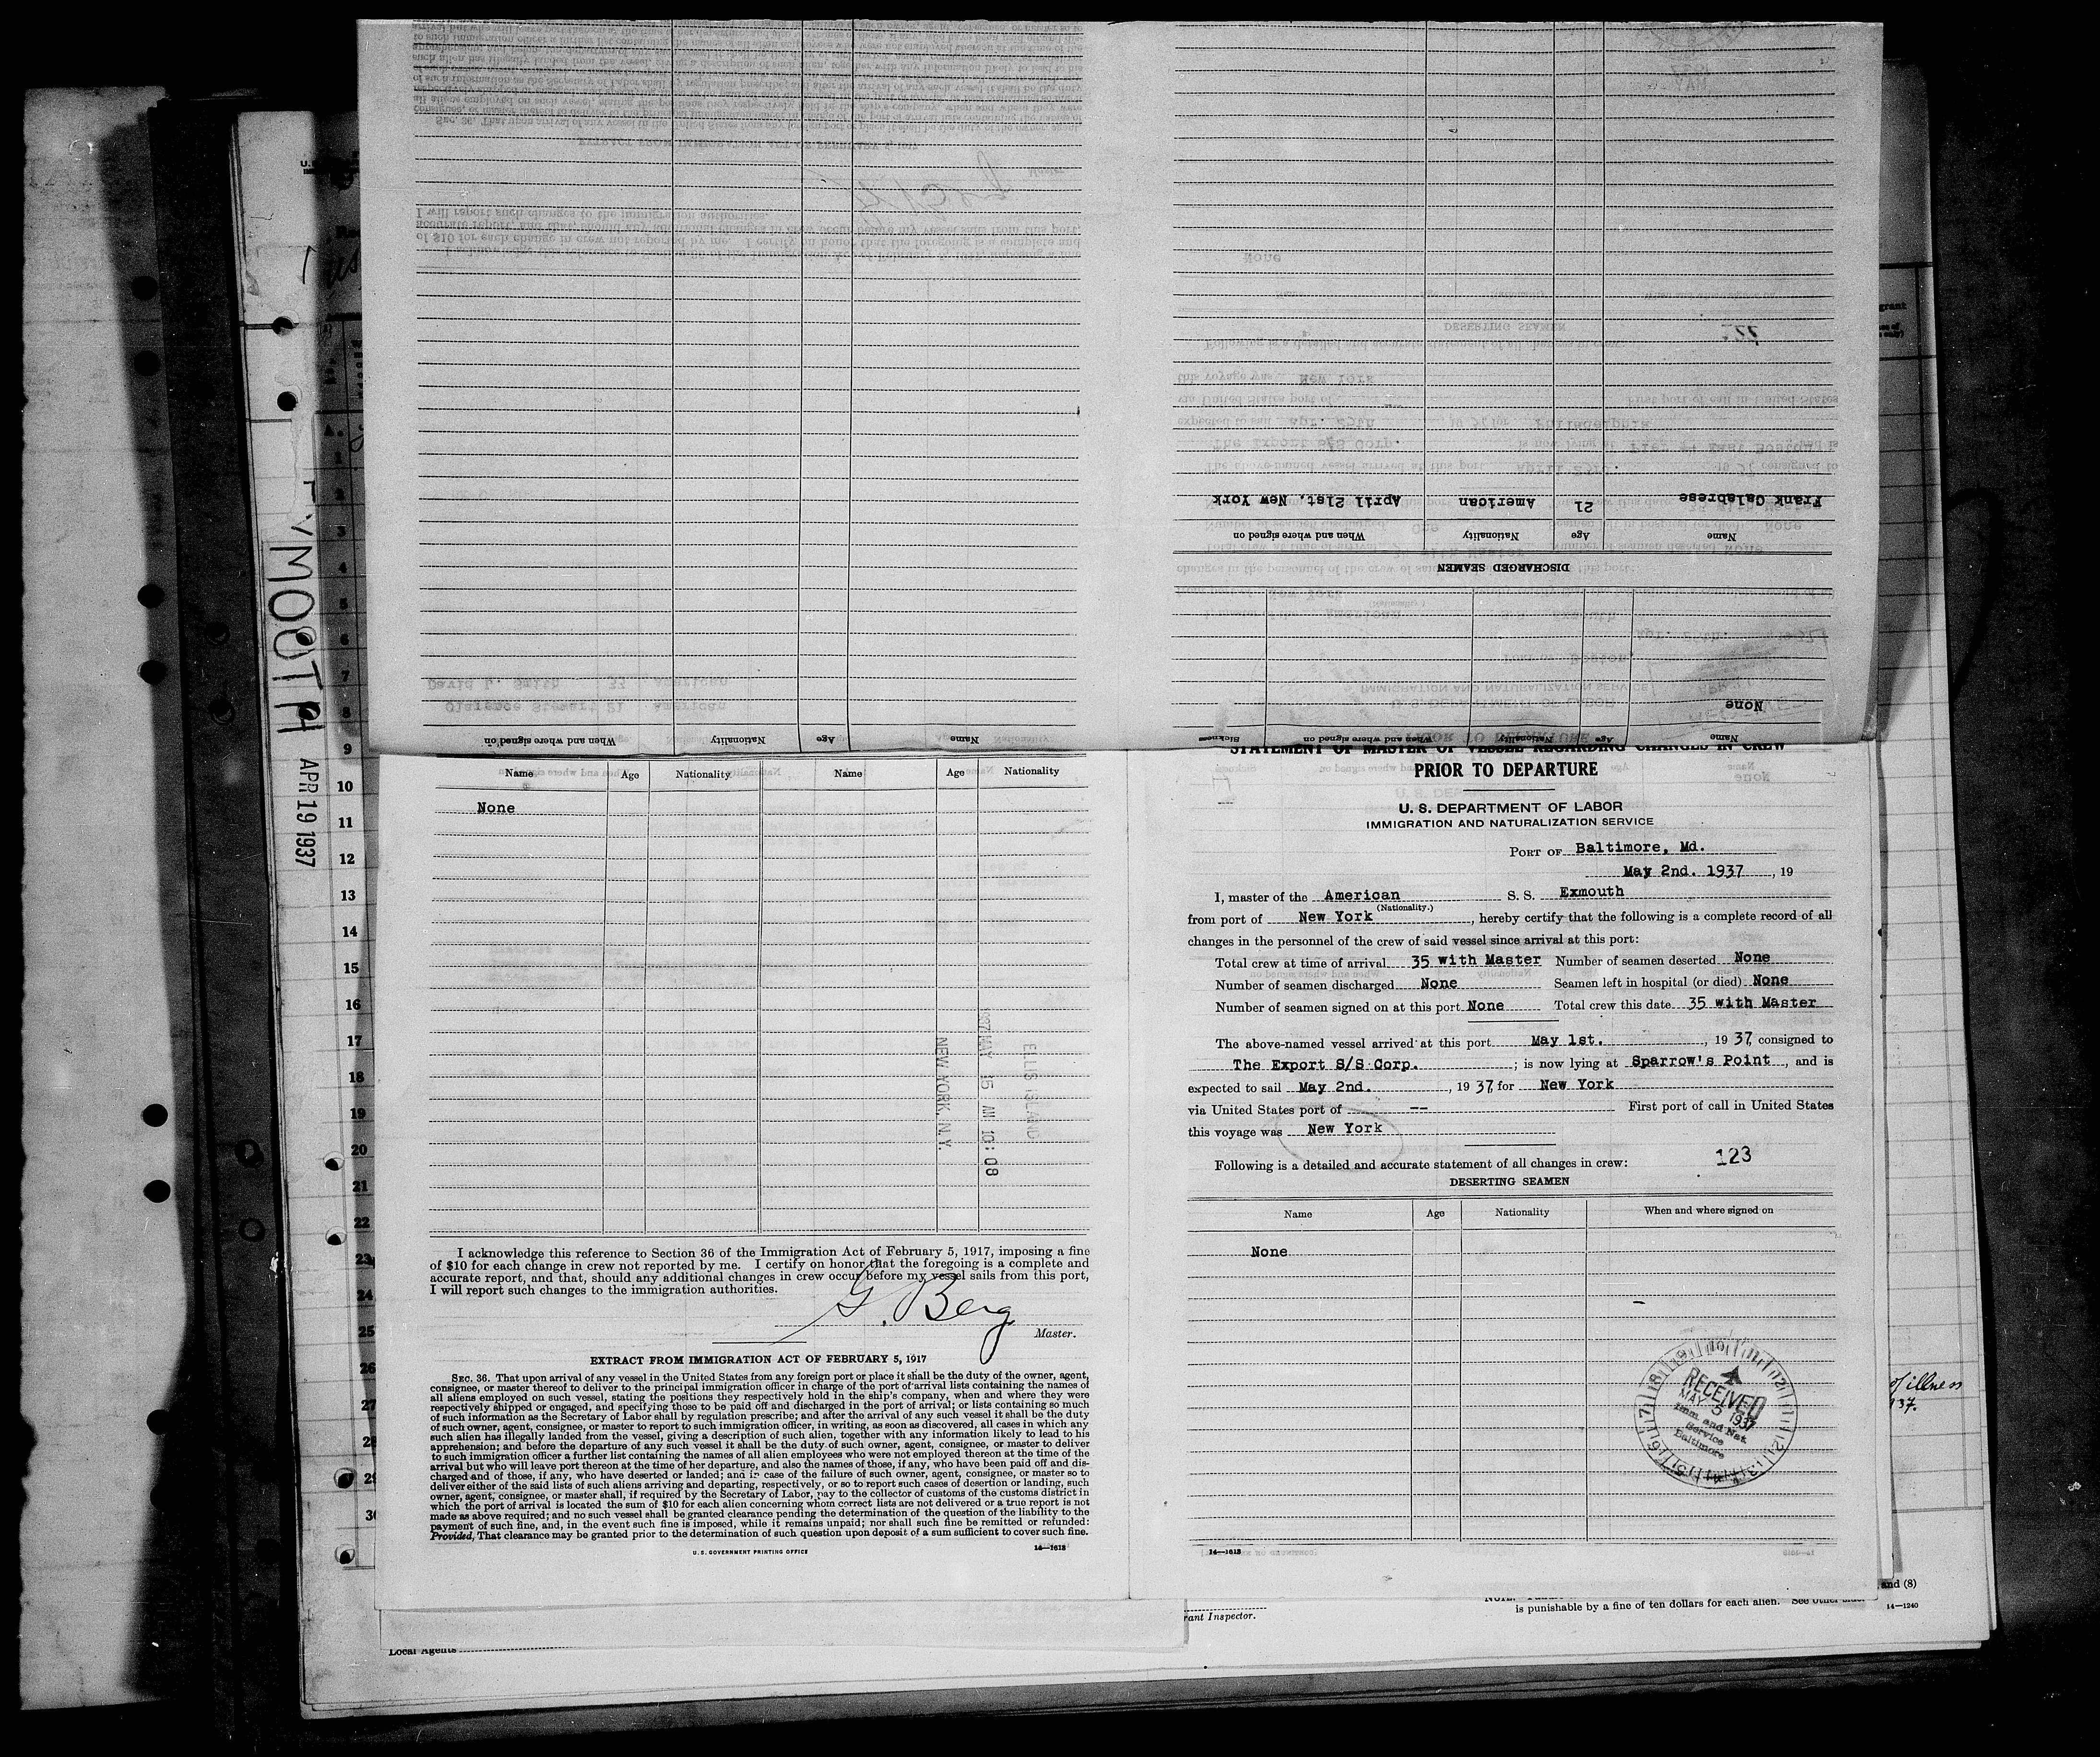 DISCHARGED SEAMEN
Name Age Nationality When and where signed on
Frank Calabrese 21 American April 21st, New York
Name Age Nationality When and where signed on Sickness
None
Name Age Nationality When and where signed on
Clarence Stewart 21 American
David L. Smith 33 American
YMOUTH
APR 19 1937
1
2
3
4
5
6
7
8
9
10
11
12
13
14
15
16
17
18
19
20
21
22
23
24
25
26
27
28
29
30
Name Age Nationality Name Age Nationality
None
ELLIS ISLAND
1937 MAY 15 AM 10:08
NEW YORK, N.Y.
I acknowledge this reference to Section 36 of the Immigration Act of February 5, 1917, imposing a fine
of $10 for each change in crew not reported by me. I certify on honor that the foregoing is a complete and
accurate report, and that, should any additional changes in crew occur before my vessel sails from this port,
I will report such changes to the immigration authorities.
G. Berg
Master.
EXTRACT FROM IMMIGRATION ACT OF FEBRUARY 5, 1917
SEC. 36. That upon arrival of any vessel in the United States from any foreign port or place it shall be the duty of the owner, agent,
consignee, or master thereof to deliver to the principal immigration officer in charge of the port of arrival lists containing the names of
all aliens employed on such vessel, stating the positions they respectively hold in the ship's company, when and where they were
respectively shipped or engaged, and specifying those to be paid off and discharged in the port of arrival; or lists containing so much
of such information as the Secretary of Labor shall by regulation prescribe; and after the arrival of any such vessel it shall be the duty
of such owner, agent, consignee, or master to report to such immigration officer, in writing, as soon as discovered, all cases in which any
such alien has illegally landed from the vessel, giving a description of such alien, together with any information likely to lead to his
apprehension; and before the departure of any such vessel it shall be the duty of such owner, agent, consignee, or master to deliver
to such immigration officer a further list containing the names of all alien employees who were not employed thereon at the time of the
arrival but who will leave port thereon at the time of her departure, and also the names of those, if any, who have been paid off and dis-
charged and of those, if any, who have deserted or landed; and in case of the failure of such owner, agent, consignee, or master so to
deliver either of the said lists of such aliens arriving and departing, respectively, or so to report such cases of desertion or landing, such
owner, agent, consignee, or master shall, if required by the Secretary of Labor, pay to the collector of customs of the customs district in
which the port of arrival is located the sum of $10 for each alien concerning whom correct lists are not delivered or a true report is not
made as above required; and no such vessel shall be granted clearance pending the determination of the question of the liability to the
payment of such fine, and, in the event such fine is imposed, while it remains unpaid; nor shall such fine be remitted or refunded:
Provided, That clearance may be granted prior to the determination of such question upon deposit of a sum sufficient to cover such fine.
U. S. GOVERNMENT PRINTING OFFICE 14—1618
STATEMENT OF MASTER OF VESSEL REGARDING CHANGES IN CREW
PRIOR TO DEPARTURE
U. S. DEPARTMENT OF LABOR
IMMIGRATION AND NATURALIZATION SERVICE
PORT OF Baltimore, Md.
May 2nd. 1937, 19
I, master of the American S. S. Exmouth
(Nationality.)
from port of New York, hereby certify that the following is a complete record of all
changes in the personnel of the crew of said vessel since arrival at this port:
Total crew at time of arrival 35 with Master Number of seamen deserted None
Number of seamen discharged None Seamen left in hospital (or died) None
Number of seamen signed on at this port None Total crew this date 35 with Master
The above-named vessel arrived at this port May 1st., 1937, consigned to
The Export S/S Corp.; is now lying at Sparrow's Point, and is
expected to sail May 2nd., 1937, for New York
via United States port of -- First port of call in United States
this voyage was New York
Following is a detailed and accurate statement of all changes in crew: 123
DESERTING SEAMEN
Name Age Nationality When and where signed on
None
RECEIVED
MAY 5 1937
Imm. and Nat.
Service
Baltimore
14—1618
of illness
37.
and (8)
is punishable by a fine of ten dollars for each alien. See other side
14—1240
rant Inspector.
Local Agents